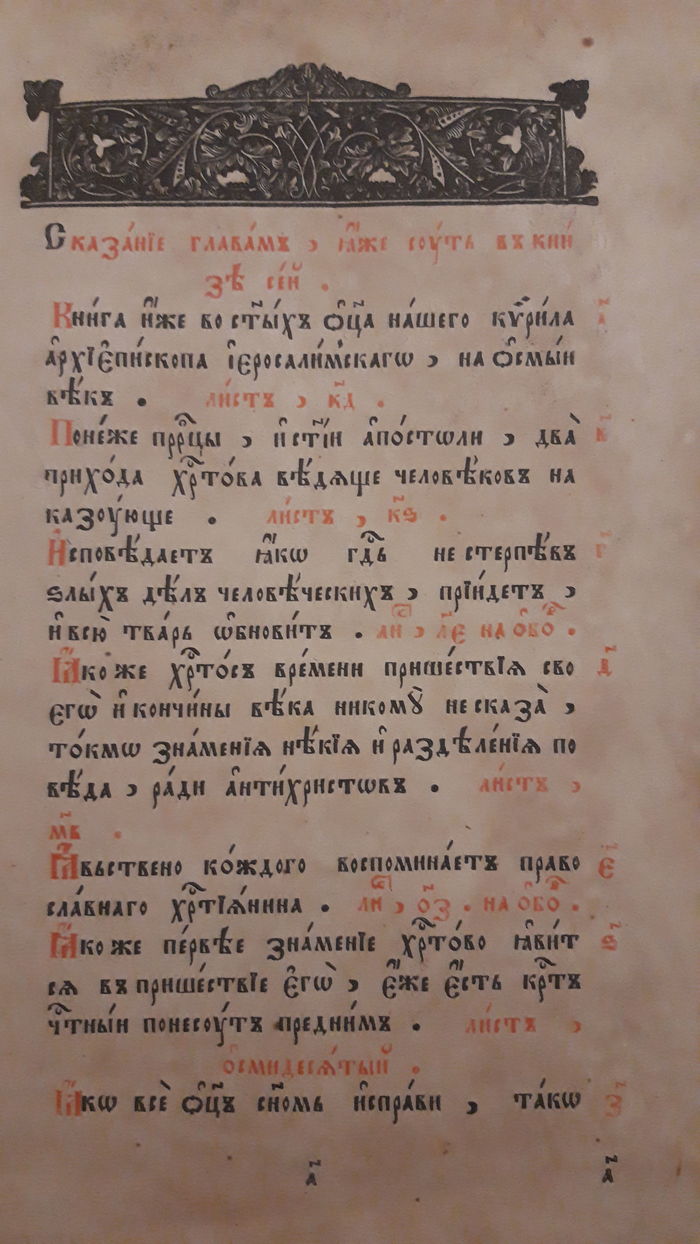 Сказа́нїе глава́мъ , ꙗ҆́же соу́ть въ кни́
зѣ се́й .
Кни́га и҆́же во ст҃ы́хъ ѻ҆ц҃а на́шего кѷри́ла а҃
а҆рхїепи́скопа і҆еросали́мскагѡ , на ѻ҆смы́и
вѣ́къ . ли́стъ , к҃д .
Поне́же прⷪ҇рцы , и҆ ст҃і́и а҆по́столи , два̀ в҃
прихо́да хрⷭ҇то́ва вѣ́дѧще человѣ́ковъ на
казоу́юще . ли́стъ , к҃ѕ .
И҆сповѣ́даетъ ꙗ҆́кѡ гдⷭ҇ь не стерпѣ́въ г҃
ѕлы́хъ дѣ́лъ человѣ́ческихъ , прїи́детъ ,
и҆ всю̀ тва́рь ѡ҆бнови́тъ . лиⷭ҇ , л҃е на ѻ҆боⷬ҇ .
Ꙗ҆́коже хрⷭ҇то́съ вре́мени прише́ствїѧ сво д҃
егѡ̀ и҆ кончи́ны вѣ́ка никомꙋ̀ не сказа̀ ,
то́кмѡ зна́менїѧ нѣ́кїѧ и҆ раздѣле́нїѧ по
вѣ́да , ра́ди а҆нти́христовъ . ли́стъ ,
м҃в .
Ꙗ҆́вьствено ко́ждого воспомина́етъ право е҃
сла́внаго хрⷭ҇тїѧ́нина . лиⷭ҇ , ѻ҃з . на ѻ҆боⷬ҇ .
Ꙗ҆́коже пе́рвѣе зна́менїе хрⷭ҇то́во ꙗ҆ви́т ѕ҃
сѧ въ прише́ствїе є҆гѡ̀ , є҆́же є҆́сть крⷭ҇тъ
чⷭ҇тны́и понесоу́тъ предни́мъ . ли́стъ ,
ѻ҆смидесѧ́тый .
Ꙗ҆́кѡ всѐ ѻ҆ц҃ъ сн҃омь и҆спра́ви , та́кѡ з҃
а҃ а҃